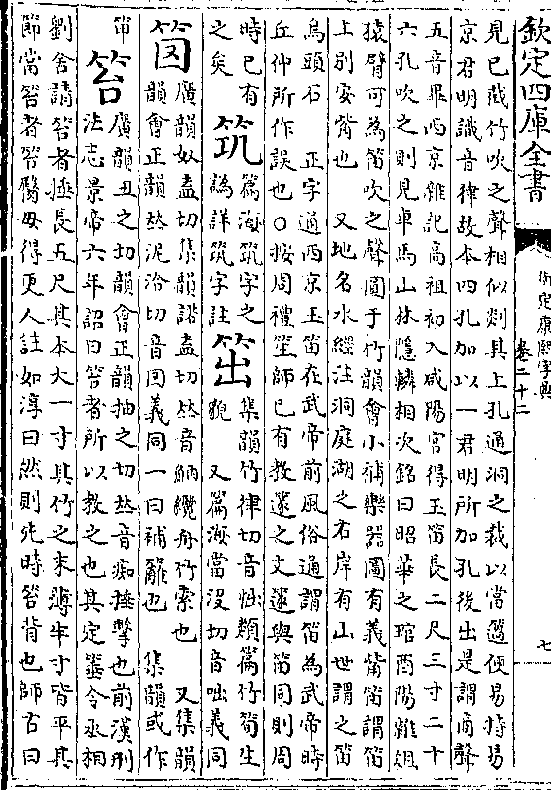 欽定四庫全書
御定康熙字典
卷二十二
七
見已截竹吹之聲相似剡其上孔通洞之裁以當簻便易持易
京君明識音律故本四孔加以一君明所加孔後出是謂商聲
五音畢西京雜記高祖初入咸陽宮得玉笛長二尺三寸二十
六孔吹之則見車馬山林隱轔相次銘曰昭華之琯酉陽雜俎
猿臂可為笛吹之聲圓于竹韻會小補樂器圖有義觜笛謂笛
上別安觜也　又地名水經注洞庭湖之右岸有山世謂之笛
烏頭石　正字通西京玉笛在武帝前風俗通謂笛為武帝時
丘仲所作誤也○按周禮笙師已有教篴之文篴與笛同則周
時已有
之矣
筑
篇海筑字之
譌詳筑字註
笜
集韻竹律切音怵類篇竹筍生
貌　又篇海當沒切音咄義同
廣韻奴盍切集韻諾盍切𠀤音魶纜舟竹索也　又集韻
韻會正韻𠀤泥洽切音図義同一曰補籬也　集韻或作
笞
廣韻丑之切韻會正韻抽之切𠀤音痴捶擊也前漢刑
法志景帝六年詔曰笞者所以教之也其定箠令丞相
劉舍請笞者箠長五尺其本大一寸其竹之末薄半寸皆平其
節當笞者笞臀毋得更人註如淳曰然則先時笞背也師古曰